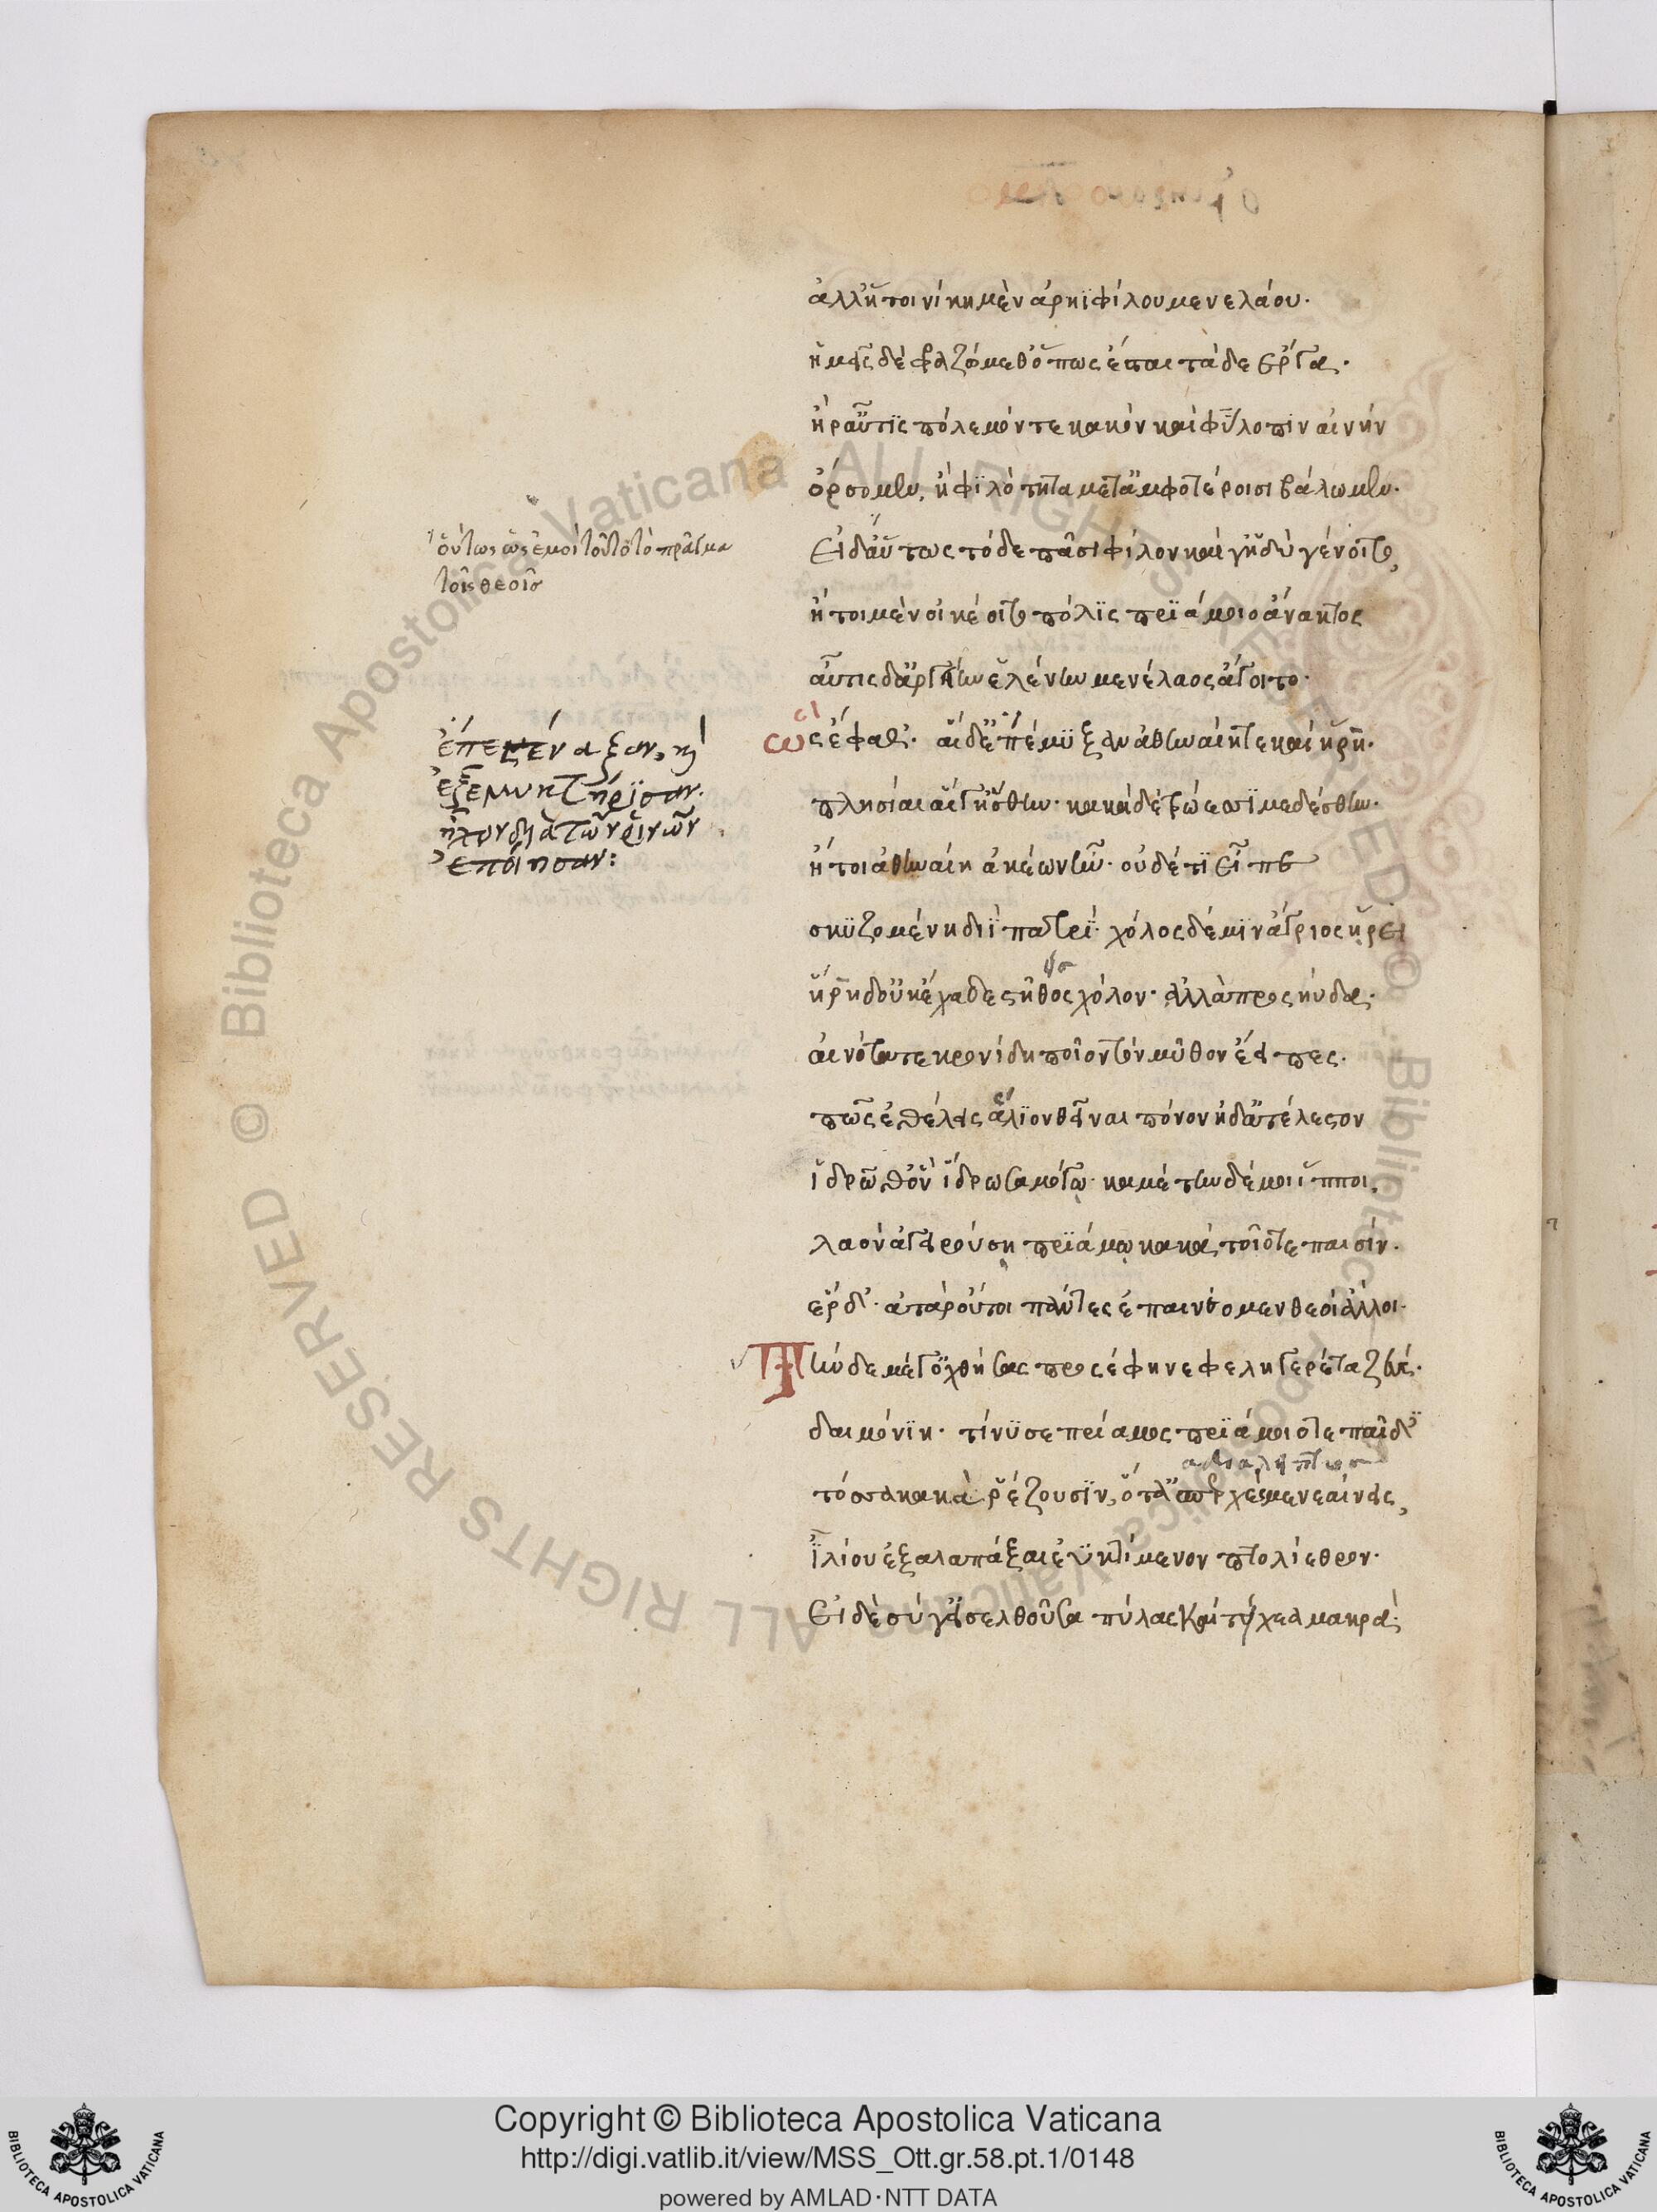 ἀλλ' ἤτοι νίκη μὲν ἀρηϊφίλου μενελάου·
ἡμεῖς δὲ φραζώμεθ' ὅπως ἔσται τάδε ἔργα·
ἤ ῥ' αὖτις πόλεμόν τε κακὸν καὶ φύλοπιν αἰνὴν
ὄρσομεν, ἢ φιλότητα μετ' ἀμφοτέροισι βάλωμεν·
οὕτως ὡς ἐμοὶ τοῦτο τὸ πρᾶγμα
τοῖς θεοῖς
εἰ δ' αὔτως τόδε πᾶσι φίλον καὶ ἡδὺ γένοιτο,
ἤτοι μὲν οἰκέοιτο πόλις πριάμοιο ἄνακτος
αὖτις δ' ἀργείην ἑλένην μενέλαος ἄγοιτο·
ὣς ἔφαθ'· αἱ δ' ἐπέμυξαν ἀθηναίη τε καὶ ἥρη·
ἐπεστέναξαν, καὶ
ἐξεμυκτήρισαν·
ἦχον διὰ τῶν ῥινῶν
ἐποίησαν:
πλησίαι αἵ γ' ἥσθην· κακὰ δὲ τρώεσσι μεδέσθην·
ἤτοι ἀθηναίη ἀκέων ἦν· οὐδέ τι εἶπε
σκυζομένη διῒ πατρί· χόλος δέ μιν ἄγριος ᾕρει
ἥρη δ' οὐκ ἔχαδε στῆθος χόλον· ἀλλὰ προσηύδα·
αἰνότατε κρονίδη ποῖον τὸν μῦθον ἔειπες·
πῶς ἐθέλεις ἅλιον θεῖναι πόνον ἠδ' ἀτέλεστον
ἱδρῶ θ' ὃν ἵδρωσα μόγῳ· καμέτην δέ μοι ἵπποι,
λαὸν ἀγειρούσῃ πριάμῳ κακά, τοῖό τε παισίν·
ἔρδ'· ἀτὰρ οὔ τοι πάντες ἐπαινέομεν θεοὶ ἄλλοι·
Τὴν δὲ μέγ' ὀχθήσας προσέφη νεφεληγερέτα ζεύς·
δαιμονίη· τί νύ σε πρίαμος πριάμοιό τε παῖδες
τόσσα κακὰ ῥέζουσιν, ὅ τ' ἀσπερχὲς μενεαίνεις,
ἰλίου ἐξαλαπάξαι ἐϋκτίμενον πτολίεθρον·
εἰ δὲ σύ γ' εἰσελθοῦσα πύλας καὶ τείχεα μακρά·
Copyright © Biblioteca Apostolica Vaticana
http://digi.vatlib.it/view/MSS_Ott.gr.58.pt.1/0148
powered by AMLAD·NTT DATA
BIBLIOTECA APOSTOLICA VATICANA
BIBLIOTECA APOSTOLICA VATICANA